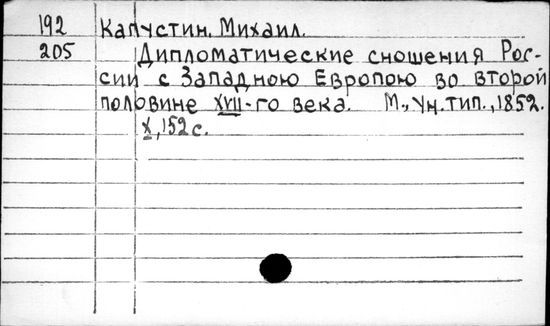 192 Капустин, Михаил.
205 Дипломатические сношения Рос-
сии с Западною Европою во второй
половине XVII-го века. М., Ун. тип., 1852.
X, 152 с.